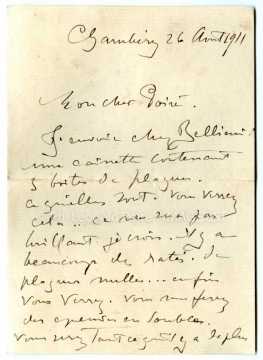 Chambéry 26 Août 1911
Mon cher Poiré.
J'envoie chez Bellieni
une caisette contenant
5 boîtes de plaques.
ce qu'elles sont. Vous verrez
cela... ce ne sera pas
brillant je crois. Il y a
beaucoup de ratés. de
plaques nulles... enfin
Vous verrez. Vous me ferez
des épreuves en doubles.
Vous serez tant ce qu'il y a de plus